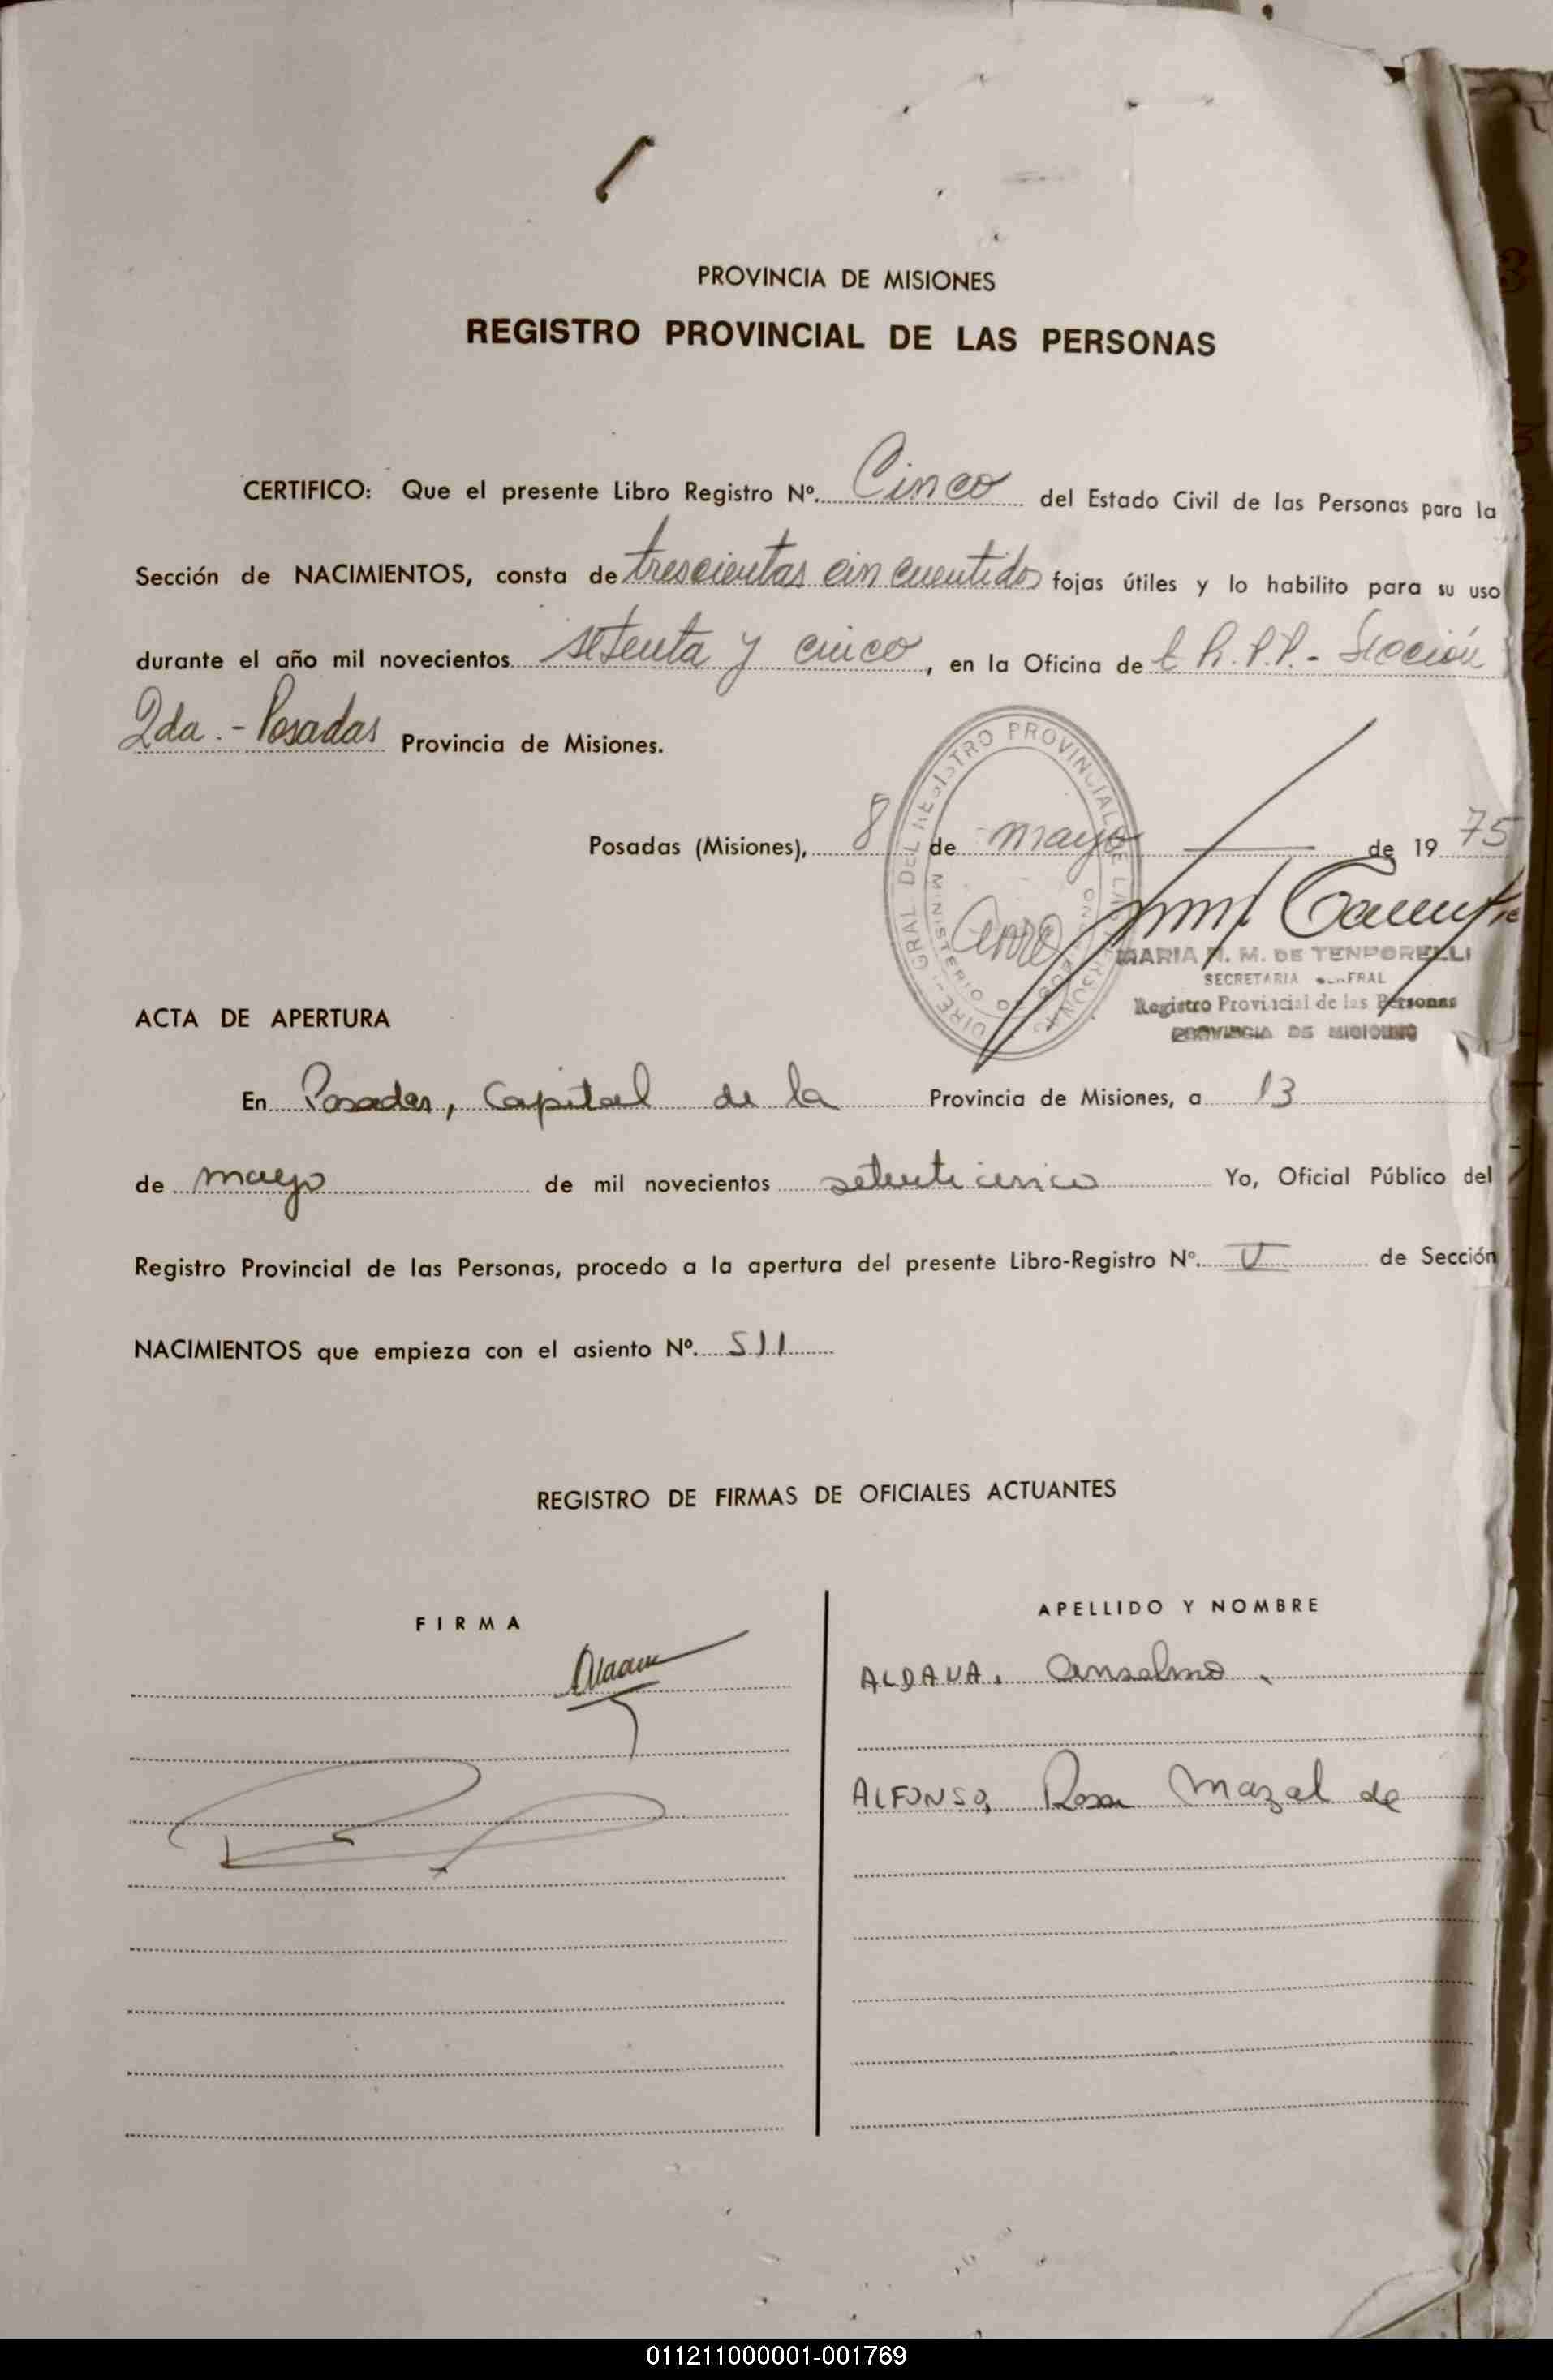 PROVINCIA DE MISIONES
REGISTRO PROVINCIAL DE LAS PERSONAS
CERTIFICO: Que el presente Libro Registro Nº. Cinco del Estado Civil de las Personas para la
Sección de NACIMIENTOS, consta de trescientas cincuentidos fojas útiles y lo habilito para su uso
durante el año mil novecientos setenta y cinco, en la Oficina de R.P.P.- Sección
2da.- Posadas Provincia de Misiones.
Posadas (Misiones), 8 de mayo de 1975
MARIA M. DE TENPORELLI
SECRETARIA
Registro Provincial de las Personas
PROVINCIA DE MISIONES
ACTA DE APERTURA
En Posadas, Capital de la Provincia de Misiones, a 13
de mayo de mil novecientos setenticinco Yo, Oficial Público del
Registro Provincial de las Personas, procedo a la apertura del presente Libro-Registro Nº. V de Sección
NACIMIENTOS que empieza con el asiento Nº. 511
REGISTRO DE FIRMAS DE OFICIALES ACTUANTES
FIRMA
APELLIDO Y NOMBRE
ALDAVA, Anselmo.
ALFONSO, Rosa Mazal de
011211000001-001769